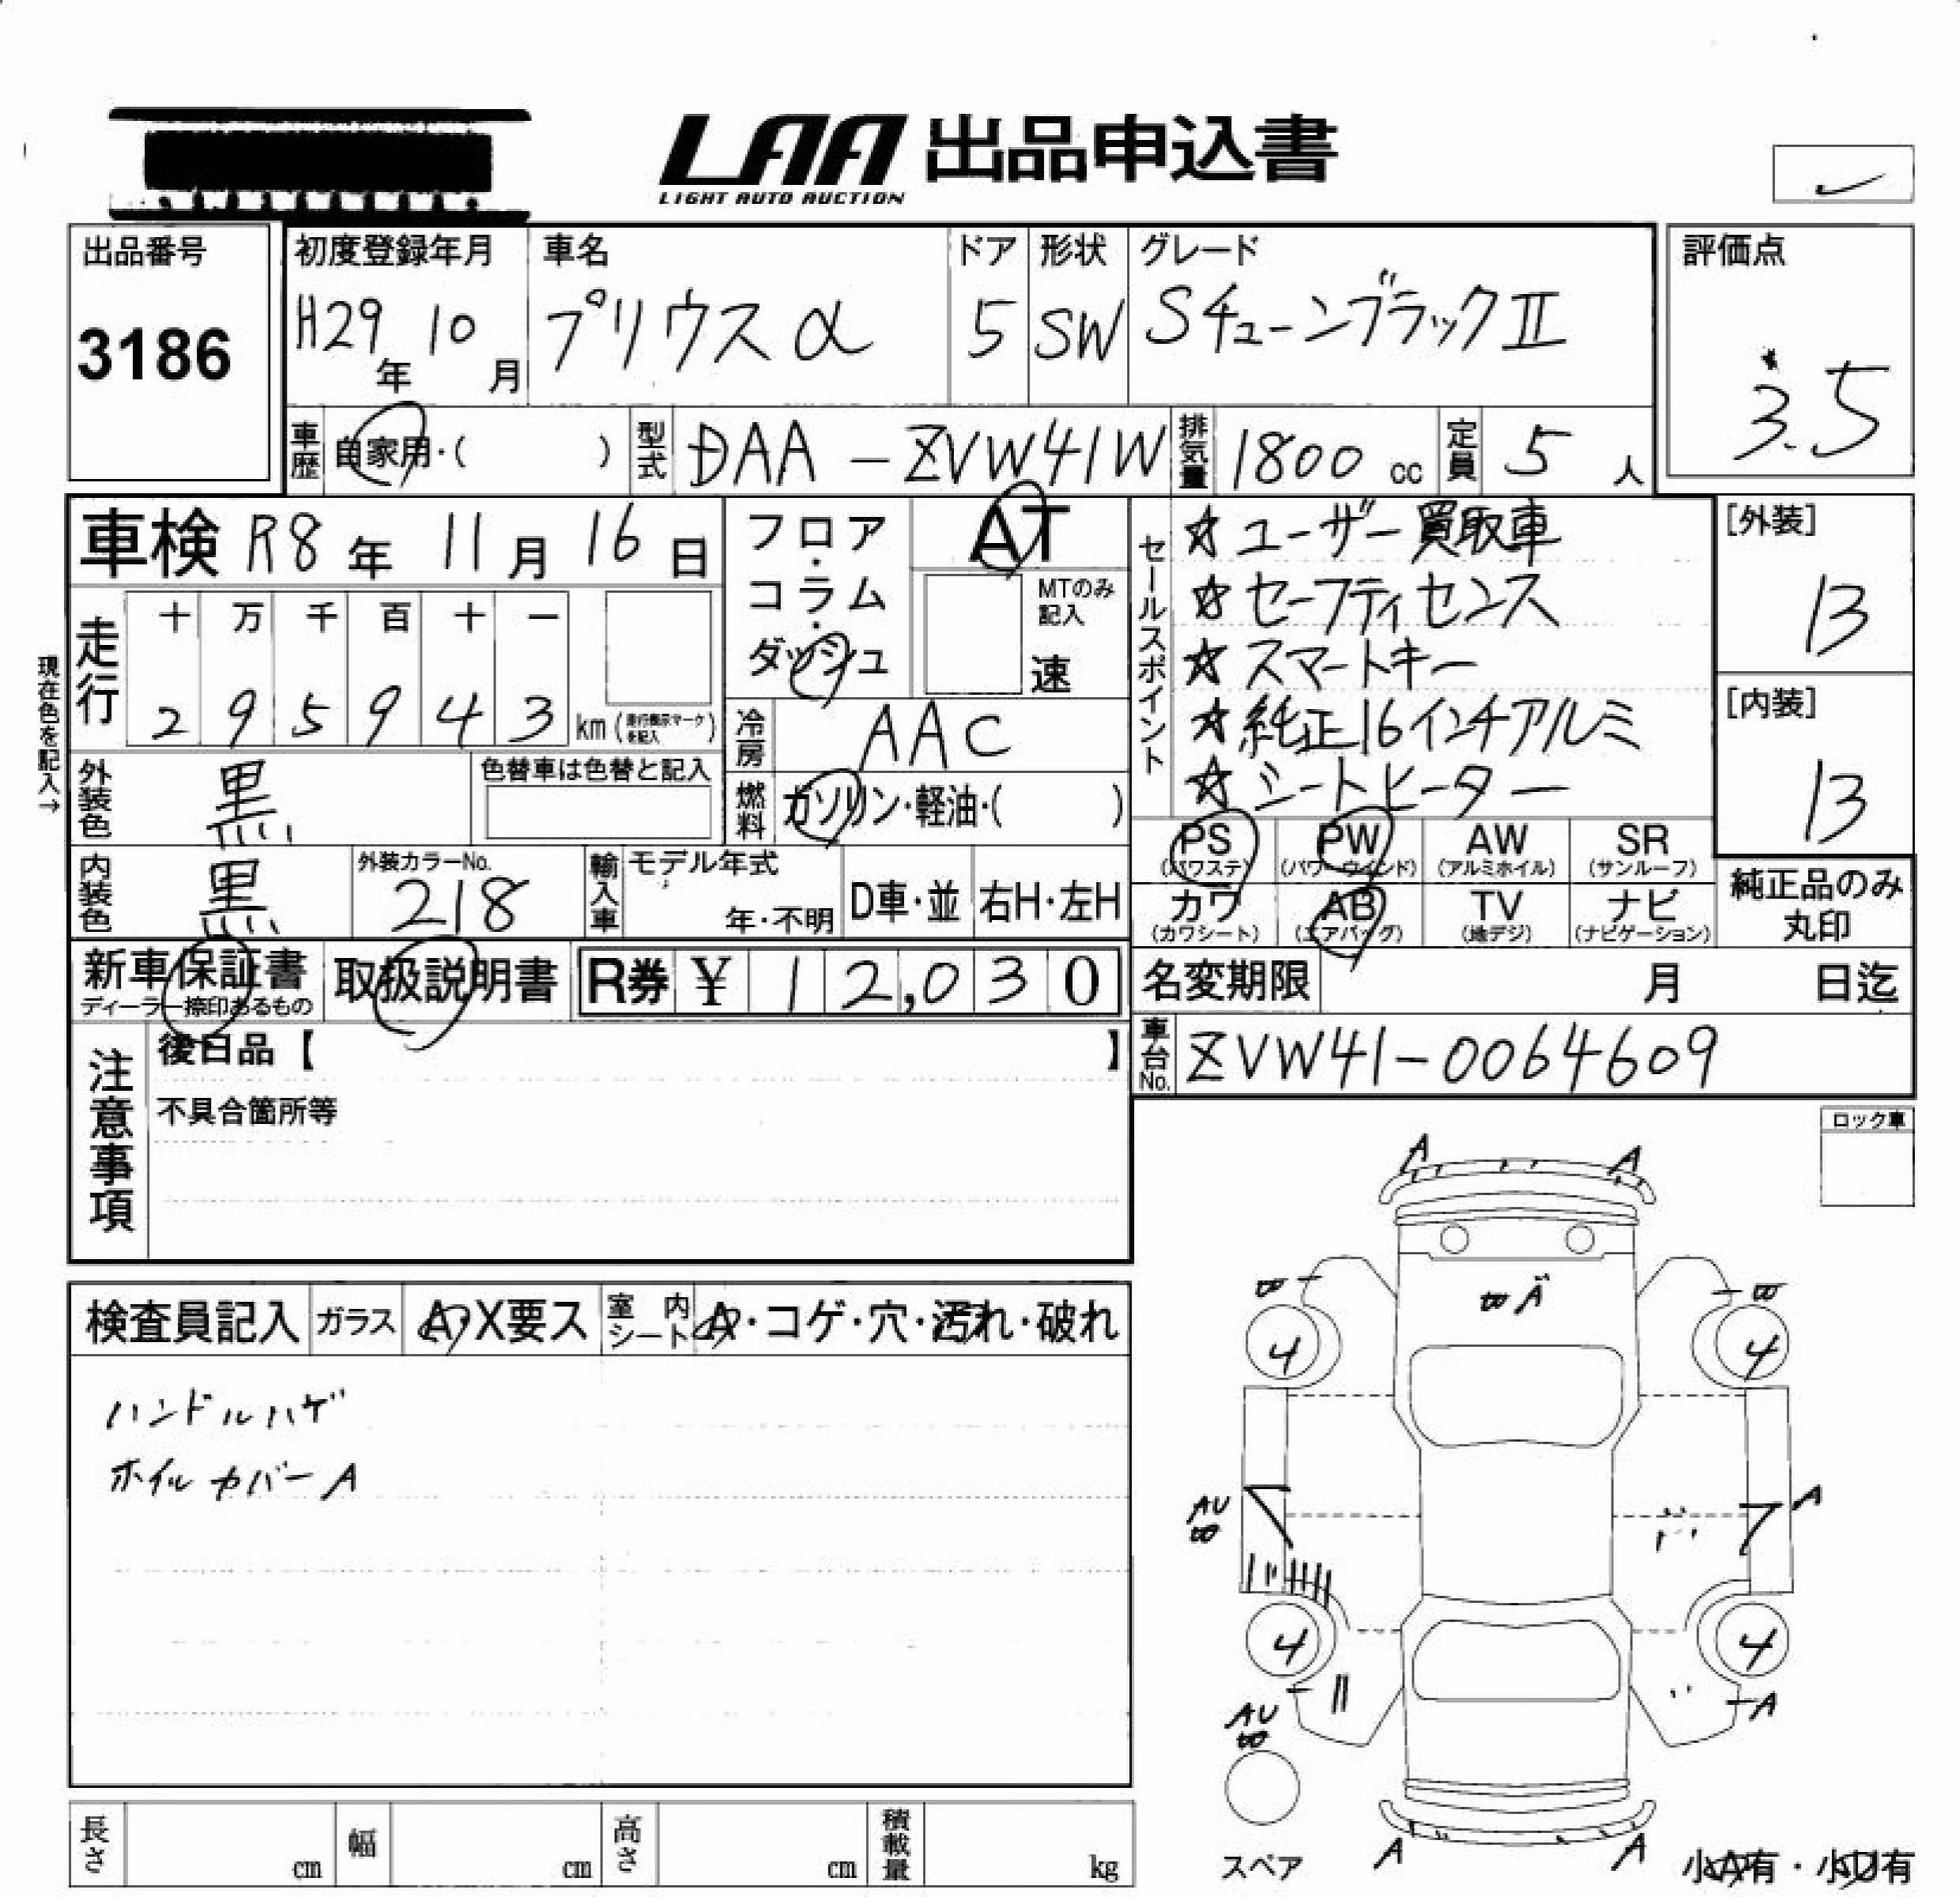 LAA 出品申込書
LIGHT AUTO AUCTION
出品番号
3186
初度登録年月
H29年 10月
車名
プリウスα
ドア
5
形状
SW
グレード
SチューンブラックⅡ
評価点
3.5
車歴 自家用・( )
型式 DAA-ZVW41W
排気量 1800 cc
定員 5 人
車検 R8年 11月 16日
フロア・コラム・ダッシュ
AT
MTのみ記入
速
走行
十 万 千 百 十 一
2 9 5 9 4 3 km (走行無表示マークを記入)
現在色を記入→
冷房 AAC
燃料 ガソリン・軽油・( )
外装色 黒
色替車は色替と記入
内装色 黒
外装カラーNo.
218
輸入車
モデル年式
年・不明
D車・並
右H・左H
セールスポイント
☆ユーザー買取車
☆セーフティセンス
☆スマートキー
☆純正16インチアルミ
☆シートヒーター
[外装]
13
[内装]
13
PS (パワステ)
PW (パワーウインド)
AW (アルミホイル)
SR (サンルーフ)
カワ (カワシート)
AB (エアバッグ)
TV (地デジ)
ナビ (ナビゲーション)
純正品のみ丸印
新車保証書
ディーラー捺印あるもの
取扱説明書
R券 ¥ 12,030
名変期限 月 日迄
車台No. ZVW41-0064609
注意事項
後日品【 】
不具合箇所等
ロック車
検査員記入
ガラス A・X要ス
室内シート A・コゲ・穴・汚れ・破れ
ハンドルハゲ
ホイルカバーA
A A
A
4 4
AU
A
4 4
AU
A
スペア
A A
小A有・小U有
長さ cm
幅 cm
高さ cm
積載量 kg